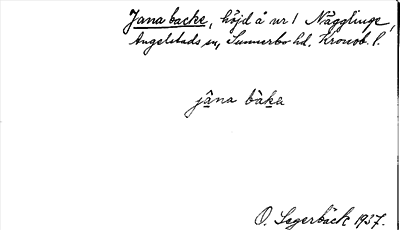 Jana backe, höjd å nr 1 Någglinge,
Angelstads sn, Sunnerbo hd. Kronob. l.
jâna bàka
O. Segerbäck 1937.